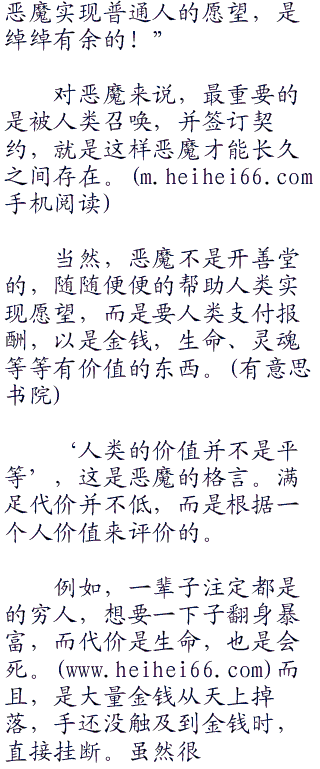 恶魔实现普通人的愿望，是
绰绰有余的！”
对恶魔来说，最重要的
是被人类召唤，并签订契
约，就是这样恶魔才能长久
之间存在。(m.heihei66.com
手机阅读)
当然，恶魔不是开善堂
的，随随便便的帮助人类实
现愿望，而是要人类支付报
酬，以是金钱，生命、灵魂
等等有价值的东西。(有意思
书院)
‘人类的价值并不是平
等’，这是恶魔的格言。满
足代价并不低，而是根据一
个人价值来评价的。
例如，一辈子注定都是
的穷人，想要一下子翻身暴
富，而代价是生命，也是会
死。(www.heihei66.com)而
且，是大量金钱从天上掉
落，手还没触及到金钱时，
直接挂断。虽然很